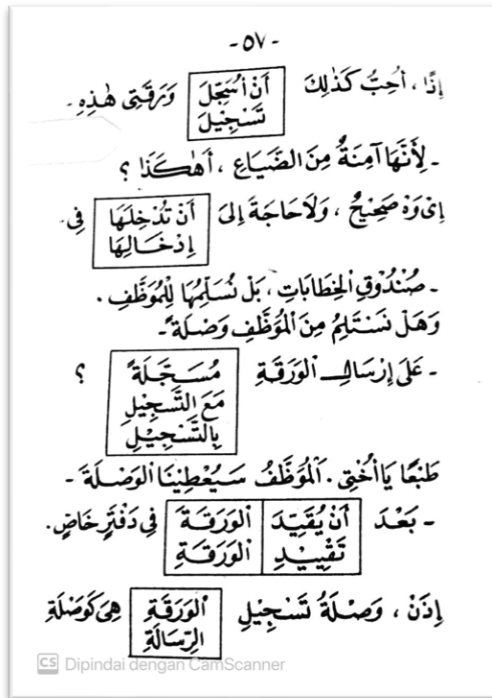 -٥٧-
إِذًا ، أُحِبُّ كَذٰلِكَ أَنْ أُسَجِّلَ وَرَقَتِى هٰذِهِ -
تَسْجِيْلَ
- لِأَنَّهَا آمِنَةٌ مِنَ الضَّيَاعِ ، أَهٰكَذَا ؟
إِىْ وَهْ صَحِيْحٌ ، وَلاَ حَاجَةَ إِلىَ أَنْ تُدْخِلَهَا فِى -
إِدْخَالِهَا
- صُنْدُوْقِ الْخِطَابَاتِ ، بَلْ نُسَلِّمُهَا لِلْمُوَظَّفِ .
وَهَلْ نَسْتَلِمُ مِنَ الْمُوَظَّفِ وَصْلَةً -
- عَلَى إِرْسَالِ الْوَرَقَةِ مُسَجَّلَةً ؟
مَعَ التَّسْجِيْلِ
بِالتَّسْجِيْلِ
طَبْعًا يَا أُخْتِى . اَلْمُوَظَّفُ سَيُعْطِيْنَا الْوَصْلَةَ -
- بَعْدَ أَنْ يُقَيِّدَ الْوَرَقَةَ فِى دَفْتَرٍ خَاصٍّ .
تَقْيِيْدِ الْوَرَقَةِ
إِذَنْ ، وَصْلَةُ تَسْجِيْلِ الْوَرَقَةِ هِىَ كَوَصْلَةِ
الرِّسَالَةِ
CS Dipindai dengan CamScanner